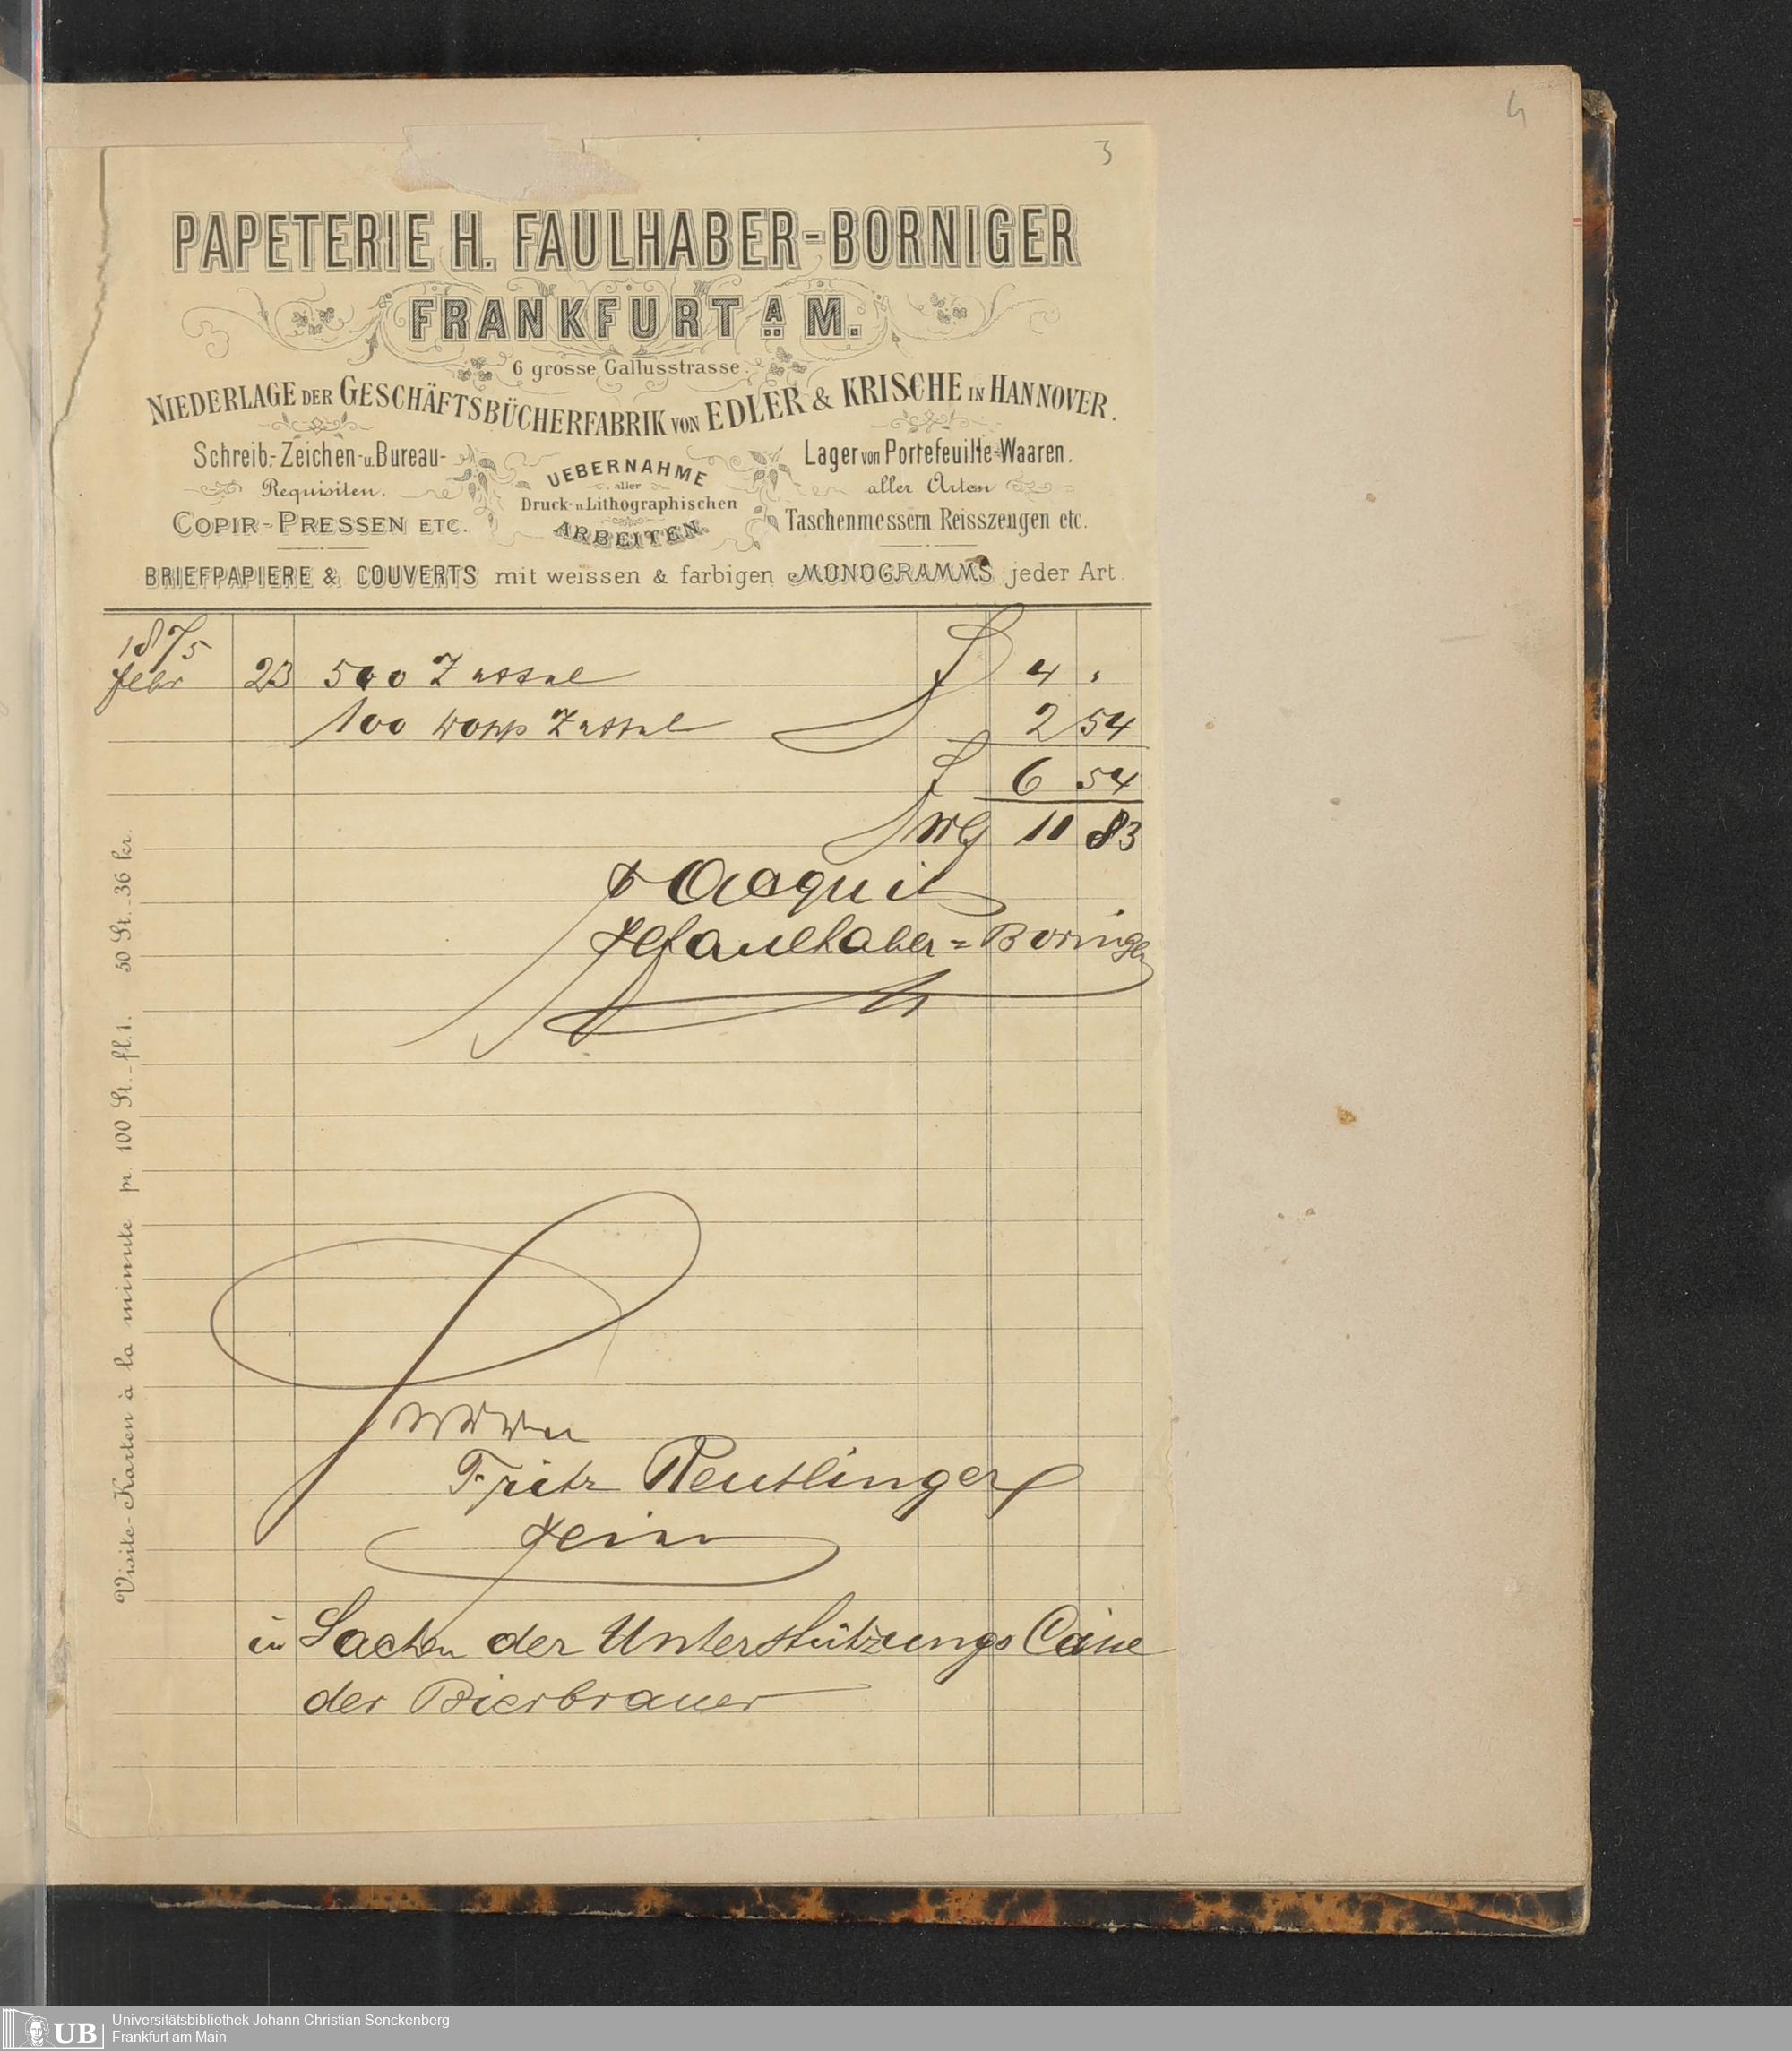 4
3
PAPETERIE H. FAULHABER-BORNIGER
FRANKFURT A M.
6 grosse Gallusstrasse.
NIEDERLAGE DER GESCHÄFTSBÜCHERFABRIK VON EDLER & KRISCHE IN HANNOVER.
Schreib-, Zeichen- u. Bureau-
Requisiten.
COPIR-PRESSEN ETC.
UEBERNAHME
aller
Druck- u. Lithographischen
ARBEITEN.
Lager von Portefeuille-Waaren.
aller Arten
Taschenmessern, Reisszeugen etc.
BRIEFPAPIERE & COUVERTS mit weissen & farbigen MONOGRAMMS jeder Art.
1875
Febr 23 500 Zettel f 4 .
100 Zettel 2 54
f 6 54
Mk 11 83
p Acquit
H Faulhaber=Borniger
Herrn
Fritz Reutlinger
hier
in Sachen der Unterstützungs Casse
der Bierbrauer
Visite-Karten à la minute pr. 100 St. fl. 1. 50 St. 36 kr.
UB
Universitätsbibliothek Johann Christian Senckenberg
Frankfurt am Main